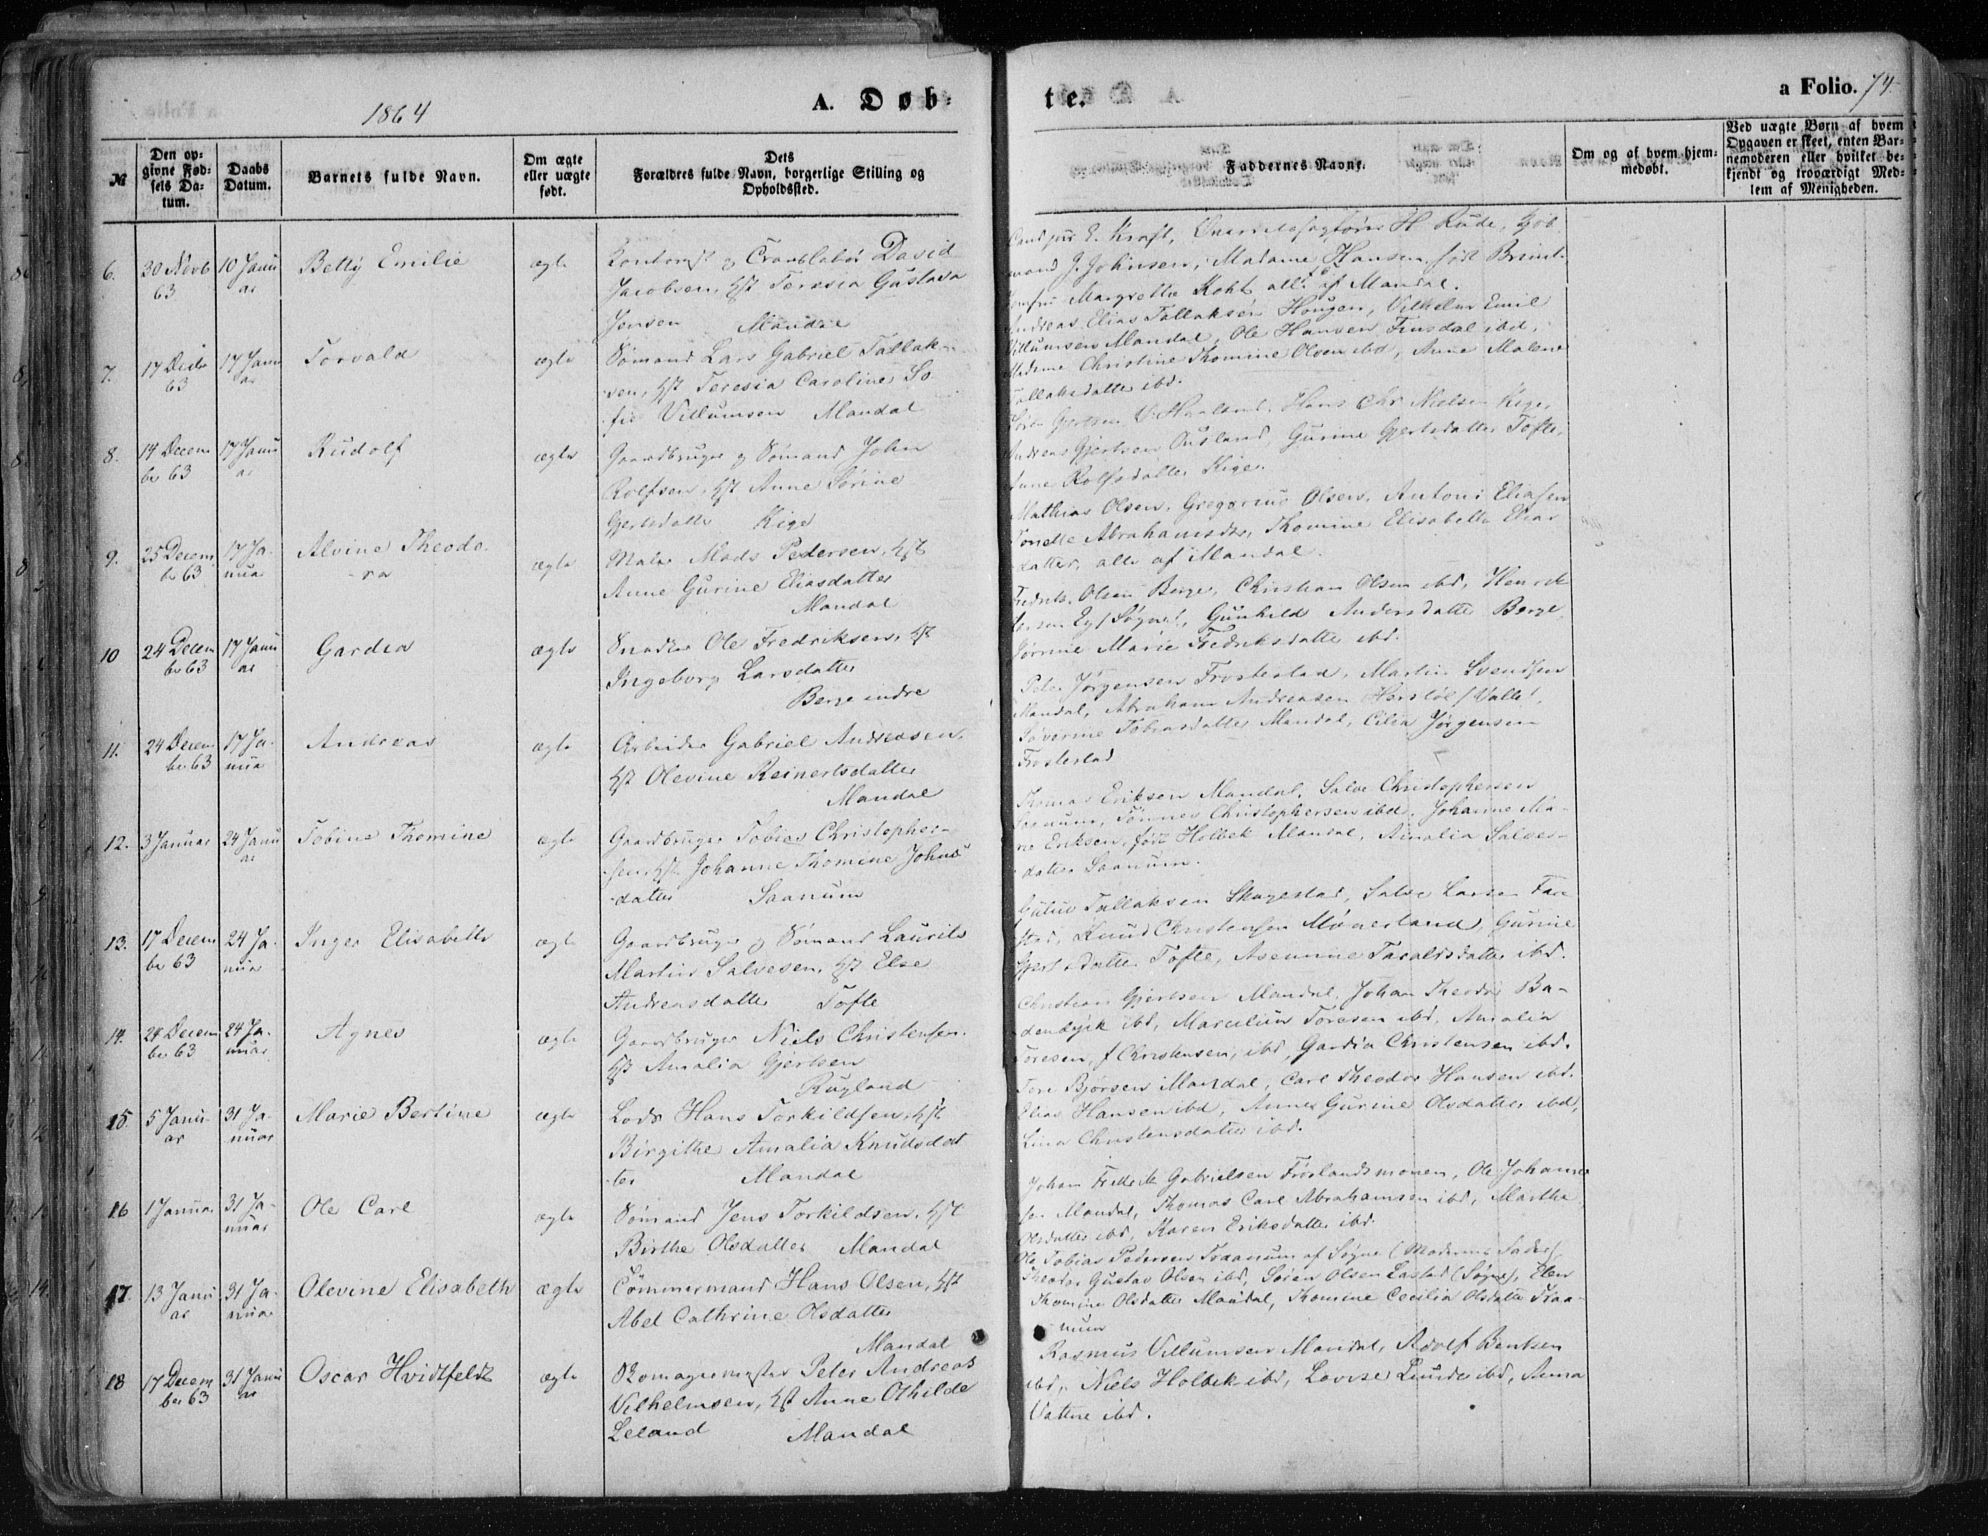 1864
A. Døb-
te.
a Folio. 74.
№
Den op-
givne Fød-
sels Da-
tum.
Daabs
Datum.
Barnets fulde Navn.
Om ægte
eller uægte
født.
Dets
Forældres fulde Navn, borgerlige Stilling og
Opholdssted.
Faddernes Navne.
Om og af hvem hjem-
medøbt.
Ved uægte Børn af hvem
Opgaven er skeet, enten Bar-
nemoderen eller hvilket be-
kjendt og troværdigt Med-
lem af Menigheden.
6. 30 Novb 10 Janu Betty Emilie ægte David
63 ar Jacobsen, Hst Teresia Gustava
Jensen Mandal
Cand jur E. Kraft, H Rude,
J. Johnsen, Madame Hansen, født
Margrethe Koht alle af Mandal.
7. 17 Decbr 17 Janu Torvald ægte Sømand Lars Gabriel Tallak-
63 ar sen, Hst Teresia Caroline So
fie Villumsen Mandal
Andreas Elias Tallaksen Hougen, Vilhelm Emil
Villumsen Mandal, Ole Hansen ibd,
Madme Christine Thomine Olsen ibd, Anne Malene
Tallaksdatter ibd.
8. 14 Decem 17 Janu Rudolf ægte Gaardbruger og Sømand John
ber 63 ar Rolfsen, Hst Anne Sørine
Gjertsdatter Kige
Gjertsen Haaland, Hans Chr Nielsen Kige,
Andreas Gjertsen Ousland, Gurine Gjertsdatter Tofte,
Anne Rolfsdatter Kige.
9. 25 Decem 17 Ja- Alvine Theodo- ægte Maler Mads Pedersen, Hst
ber 63 nuar ra Anne Gurine Eliasdatter
Mandal
Mathias Olsen, Gregorius Olsen, Antoni Eliasen
Tønette Abrahamsdtr, Thomine Elisabeth Elias
datter, alle af Mandal.
10 24 Decem 17 Janu Gardea ægte Snedker Ole Fredriksen, Hst
ber 63 ar Ingeborg Larsdatter
Berge indre
Fredrik Olsen Berge, Christian Olsen ibd, Henrik
Larsen Eg (Søgne), Gunhild Andersdatter Berge
Jørine Marie Fredriksdatter ibd.
11. 24 Decem 17 Ja- Andreas ægte Arbeider Gabriel Andreasen,
ber 63 nua Hst Olevine Reinertsdatter
Mandal
Peter Jørgensen Frostestad, Martin Svendsen
Mandal, Abraham Andreasen Herstøl (Valle),
Tobiasdatter Mandal, Cilia Jørgensen
Frostestad
12. 3 Januar 24 Janu Tobine Thomine ægte Gaardbruger Tobias Christopher-
ar sen, Hst Johanne Thomine Johns
datter Saanum
Thomas Eriksen Mandal, Salve Christophersen
Saanum, Tønnes Christophersen ibd, Johanne Ma-
rie Eriksen, født Holbek Mandal, Amalia Salves-
datter Saanum.
13. 17 Decem 24 Ja- Inger Elisabeth ægte Gaardbruger og Sømand Laurits
ber 63 nuar Martin Salvesen, Hst Else
Andreasdatter Tofte
Tallaksen Skagestad, Salve Larsen
Knud Christensen Mønerland, Gurine
Gjertsdatter Tofte, Asemine Taraldsdatter ibd.
14. 28 Decem 24 Ja- Agnes ægte Gaardbruger Niels Christensen
ber 63 nuar Hst Amalia Gjertsen
Rugland
Christian Gjertsen Mandal, Johan Theodor Ba-
dendyck ibd, Marcelius Toresen ibd, Amalia
Toresen, f Christensen, ibd, Gardia Christensen ibd.
15. 5 Janu- 31 Ja- Marie Bertine ægte Lods Hans Torkildsen, Hst
ar nuar Birgithe Amalia Knudsdat
ter Mandal
Tore Bjørsen Mandal, Carl Theodor Hansen ibd.
Elias Hansen ibd, Anne Gurine Olsdatter ibd,
Lina Christensdatter ibd.
16 1 Januar 31 Ja- Ole Carl ægte Sømand Jens Torkildsen, Hst
nuar Birthe Olsdatter Mandal
Johan Fredrik Gabrielsen Frøslandsmonen, Ole Johanne
sen Mandal, Thomas Carl Abrahamsen ibd, Martha
Olsdatter ibd, Karen Eriksdatter ibd.
17. 13 Janu 31 Ja- Olevine Elisabeth ægte Tømmermand Hans Olsen, Hst
ar nuar Abel Cathrine Olsdatter
Mandal
Ole Tobias Pedersen Traanum af Søgne (Moderens Fader),
Theodor Gustav Olsen ibd, Søren Olsen Lastad (Søgne), Elen
Thomine Olsdatter Mandal, Thomine Cecilia Olsdatter Traa-
num
18 17 Decem 31 Janu Oscar Hvidtfeldt ægte Skomagermester Peter Andreas
ber 63 ar Vilhelmsen, Hst Anne Othilde
Leland Mandal
Rasmus Villumsen Mandal, Adolf Bentsen
ibd, Niels Holbek ibd, Lovise Lunde ibd, Anna
Vatne ibd.